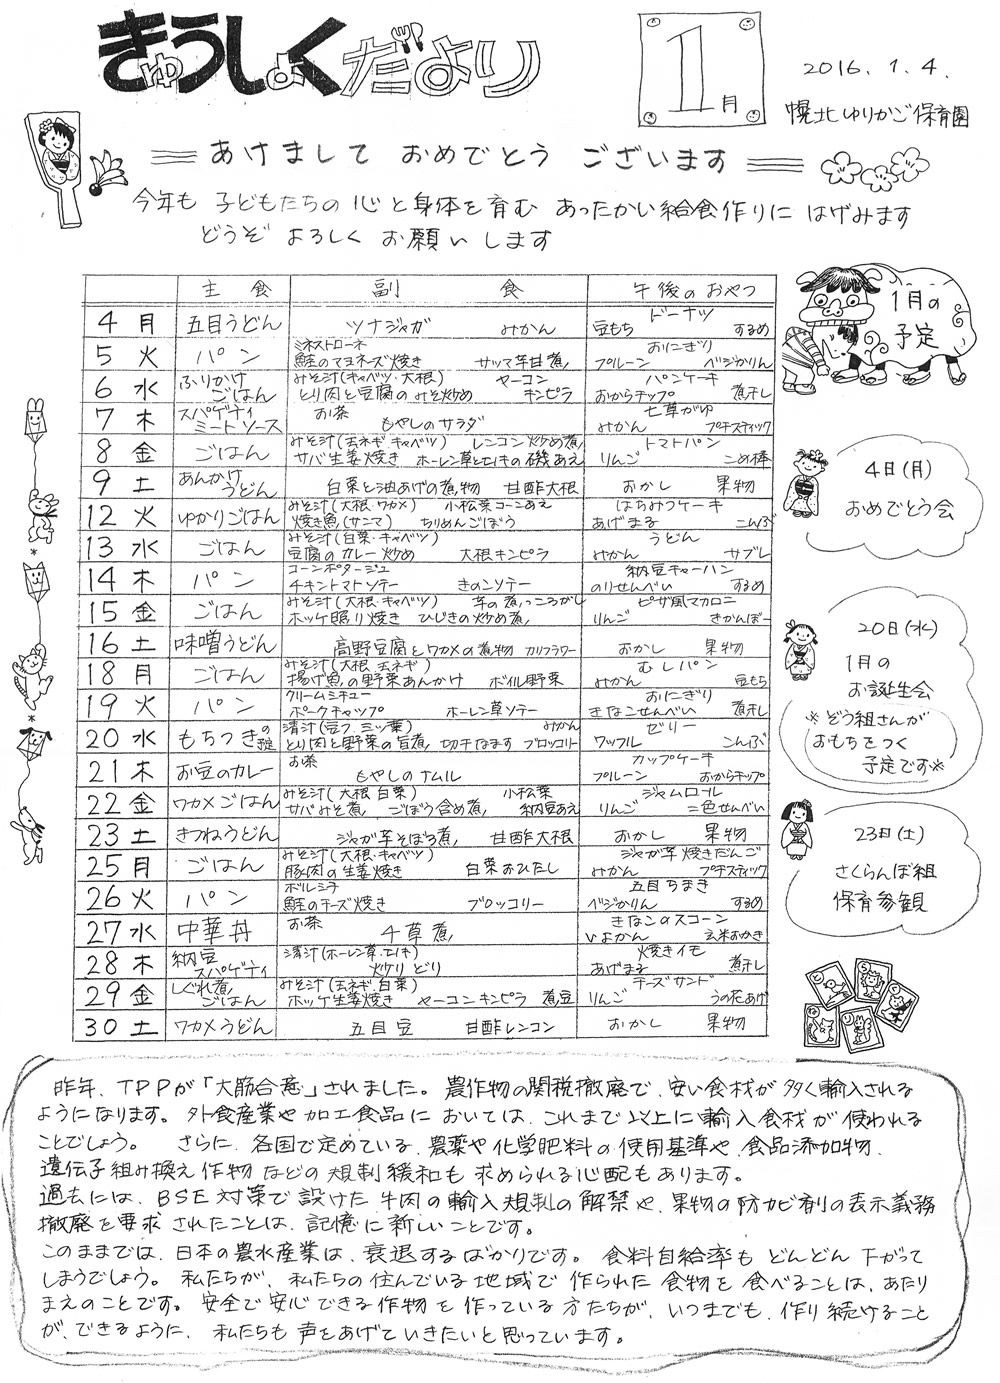 きゅうしょくだより
1月
2016.1.4.
幌北ゆりかご保育園
あけまして おめでとう ございます
今年も 子どもたちの 心と身体を育む あったかい給食作りに はげみます
どうぞ よろしく お願いします
主食 副食 午後のおやつ
4 月 五目うどん ツナジャガ みかん ドーナツ 豆もち するめ
5 火 パン ミネストローネ 鮭のマヨネーズ焼き サツマ芋甘煮 おにぎり プルーン ベジかりん
6 水 ふりかけごはん みそ汁(キャベツ・大根) とり肉と豆腐のみそ炒め ヤーコンキンピラ パンケーキ おからチップ 煮干し
7 木 スパゲティミートソース お茶 もやしのサラダ 七草がゆ みかん プチスティック
8 金 ごはん みそ汁(玉ネギ キャベツ) レンコン炒め煮 サバ生姜焼き ホーレン草とエノキの磯あえ トマトパン りんご こめ棒
9 土 あんかけうどん 白菜と油あげの煮物 甘酢大根 おかし 果物
12 火 ゆかりごはん みそ汁(大根・ワカメ) 小松菜コーンあえ 焼き魚(サンマ) ちりめんごぼう はちみつケーキ あげまる こんぶ
13 水 ごはん みそ汁(白菜・キャベツ) 豆腐のカレー炒め 大根キンピラ うどん みかん サブレ
14 木 パン コーンポタージュ チキントマトソテー きのこソテー 納豆チャーハン のりせんべい するめ
15 金 ごはん みそ汁(大根・キャベツ) 芋の煮っころがし ホッケ照り焼き ひじきの炒め煮 ピザ風マカロニ りんご きかんぼー
16 土 味噌うどん 高野豆腐とワカメの煮物 カリフラワー おかし 果物
18 月 ごはん みそ汁(大根 玉ネギ) 揚げ魚の野菜あんかけ ボイル野菜 むしパン みかん 豆もち
19 火 パン クリームシチュー ポークチャップ ホーレン草ソテー おにぎり きなこせんべい 煮干し
20 水 もちつきの予定 清汁(豆フ、ミツ葉) みかん とり肉と野菜の旨煮 切干なます ブロッコリー ゼリー ワッフル こんぶ
21 木 お豆のカレー お茶 もやしのナムル カップケーキ プルーン おからチップ
22 金 ワカメごはん みそ汁(大根 白菜) 小松菜納豆あえ サバみそ煮 ごぼう含め煮 ジャムロール りんご 二色せんべい
23 土 きつねうどん ジャガ芋そぼろ煮 甘酢大根 おかし 果物
25 月 ごはん みそ汁(大根・キャベツ) 豚肉の生姜焼き 白菜おひたし ジャガ芋焼きだんご みかん プチスティック
26 火 パン ボルシチ 鮭のチーズ焼き ブロッコリー 五目ちまき ベジかりん するめ
27 水 中華丼 お茶 千草煮 きなこのスコーン いよかん 玄米おかき
28 木 納豆スパゲティ 清汁(ホーレン草・エノキ) 炒りどり 焼きイモ あげまる 煮干し
29 金 しぐれ煮ごはん みそ汁(玉ネギ、白菜) ホッケ生姜焼き ヤーコンキンピラ 煮豆 チーズサンド りんご うの花あげ
30 土 ワカメうどん 五目豆 甘酢レンコン おかし 果物
1月の
予定
4日(月)
おめでとう会
20日(水)
1月の
お誕生会
※ぞう組さんが
おもちをつく
予定です※
23日(土)
さくらんぼ組
保育参観
昨年、TPPが「大筋合意」されました。農作物の関税撤廃で、安い食材が多く輸入される
ようになります。外食産業や加工食品においては、これまで以上に輸入食材が使われる
ことでしょう。 さらに、各国で定めている、農薬や化学肥料の使用基準や、食品添加物、
遺伝子組み換え作物などの規制緩和も求められる心配もあります。
過去には、BSE対策で設けた牛肉の輸入規制の解禁や、果物の防カビ剤の表示義務
撤廃を要求されたことは、記憶に新しいことです。
このままでは、日本の農水産業は、衰退するばかりです。食料自給率もどんどん下がって
しまうでしょう。私たちが、私たちの住んでいる地域で作られた食物を食べることは、あたり
まえのことです。安全で安心できる作物を作っている方たちが、いつまでも、作り続けること
が、できるように、私たちも声をあげていきたいと思っています。